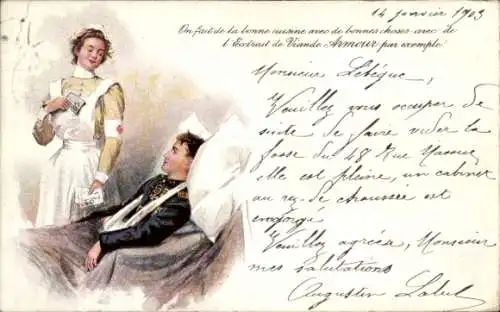 14 janvier 1903
On fait de la bonne cuisine avec de bonnes choses avec de
l'Extrait de Viande Armour par exemple
Monsieur Létêque,
Veuillez vous occuper de
suite de faire vider la
fosse du 48 Rue
elle est pleine, un cabinet
au rez-de chaussée est
engorgé
Veuillez agréer, Monsieur
mes salutations
Augustin